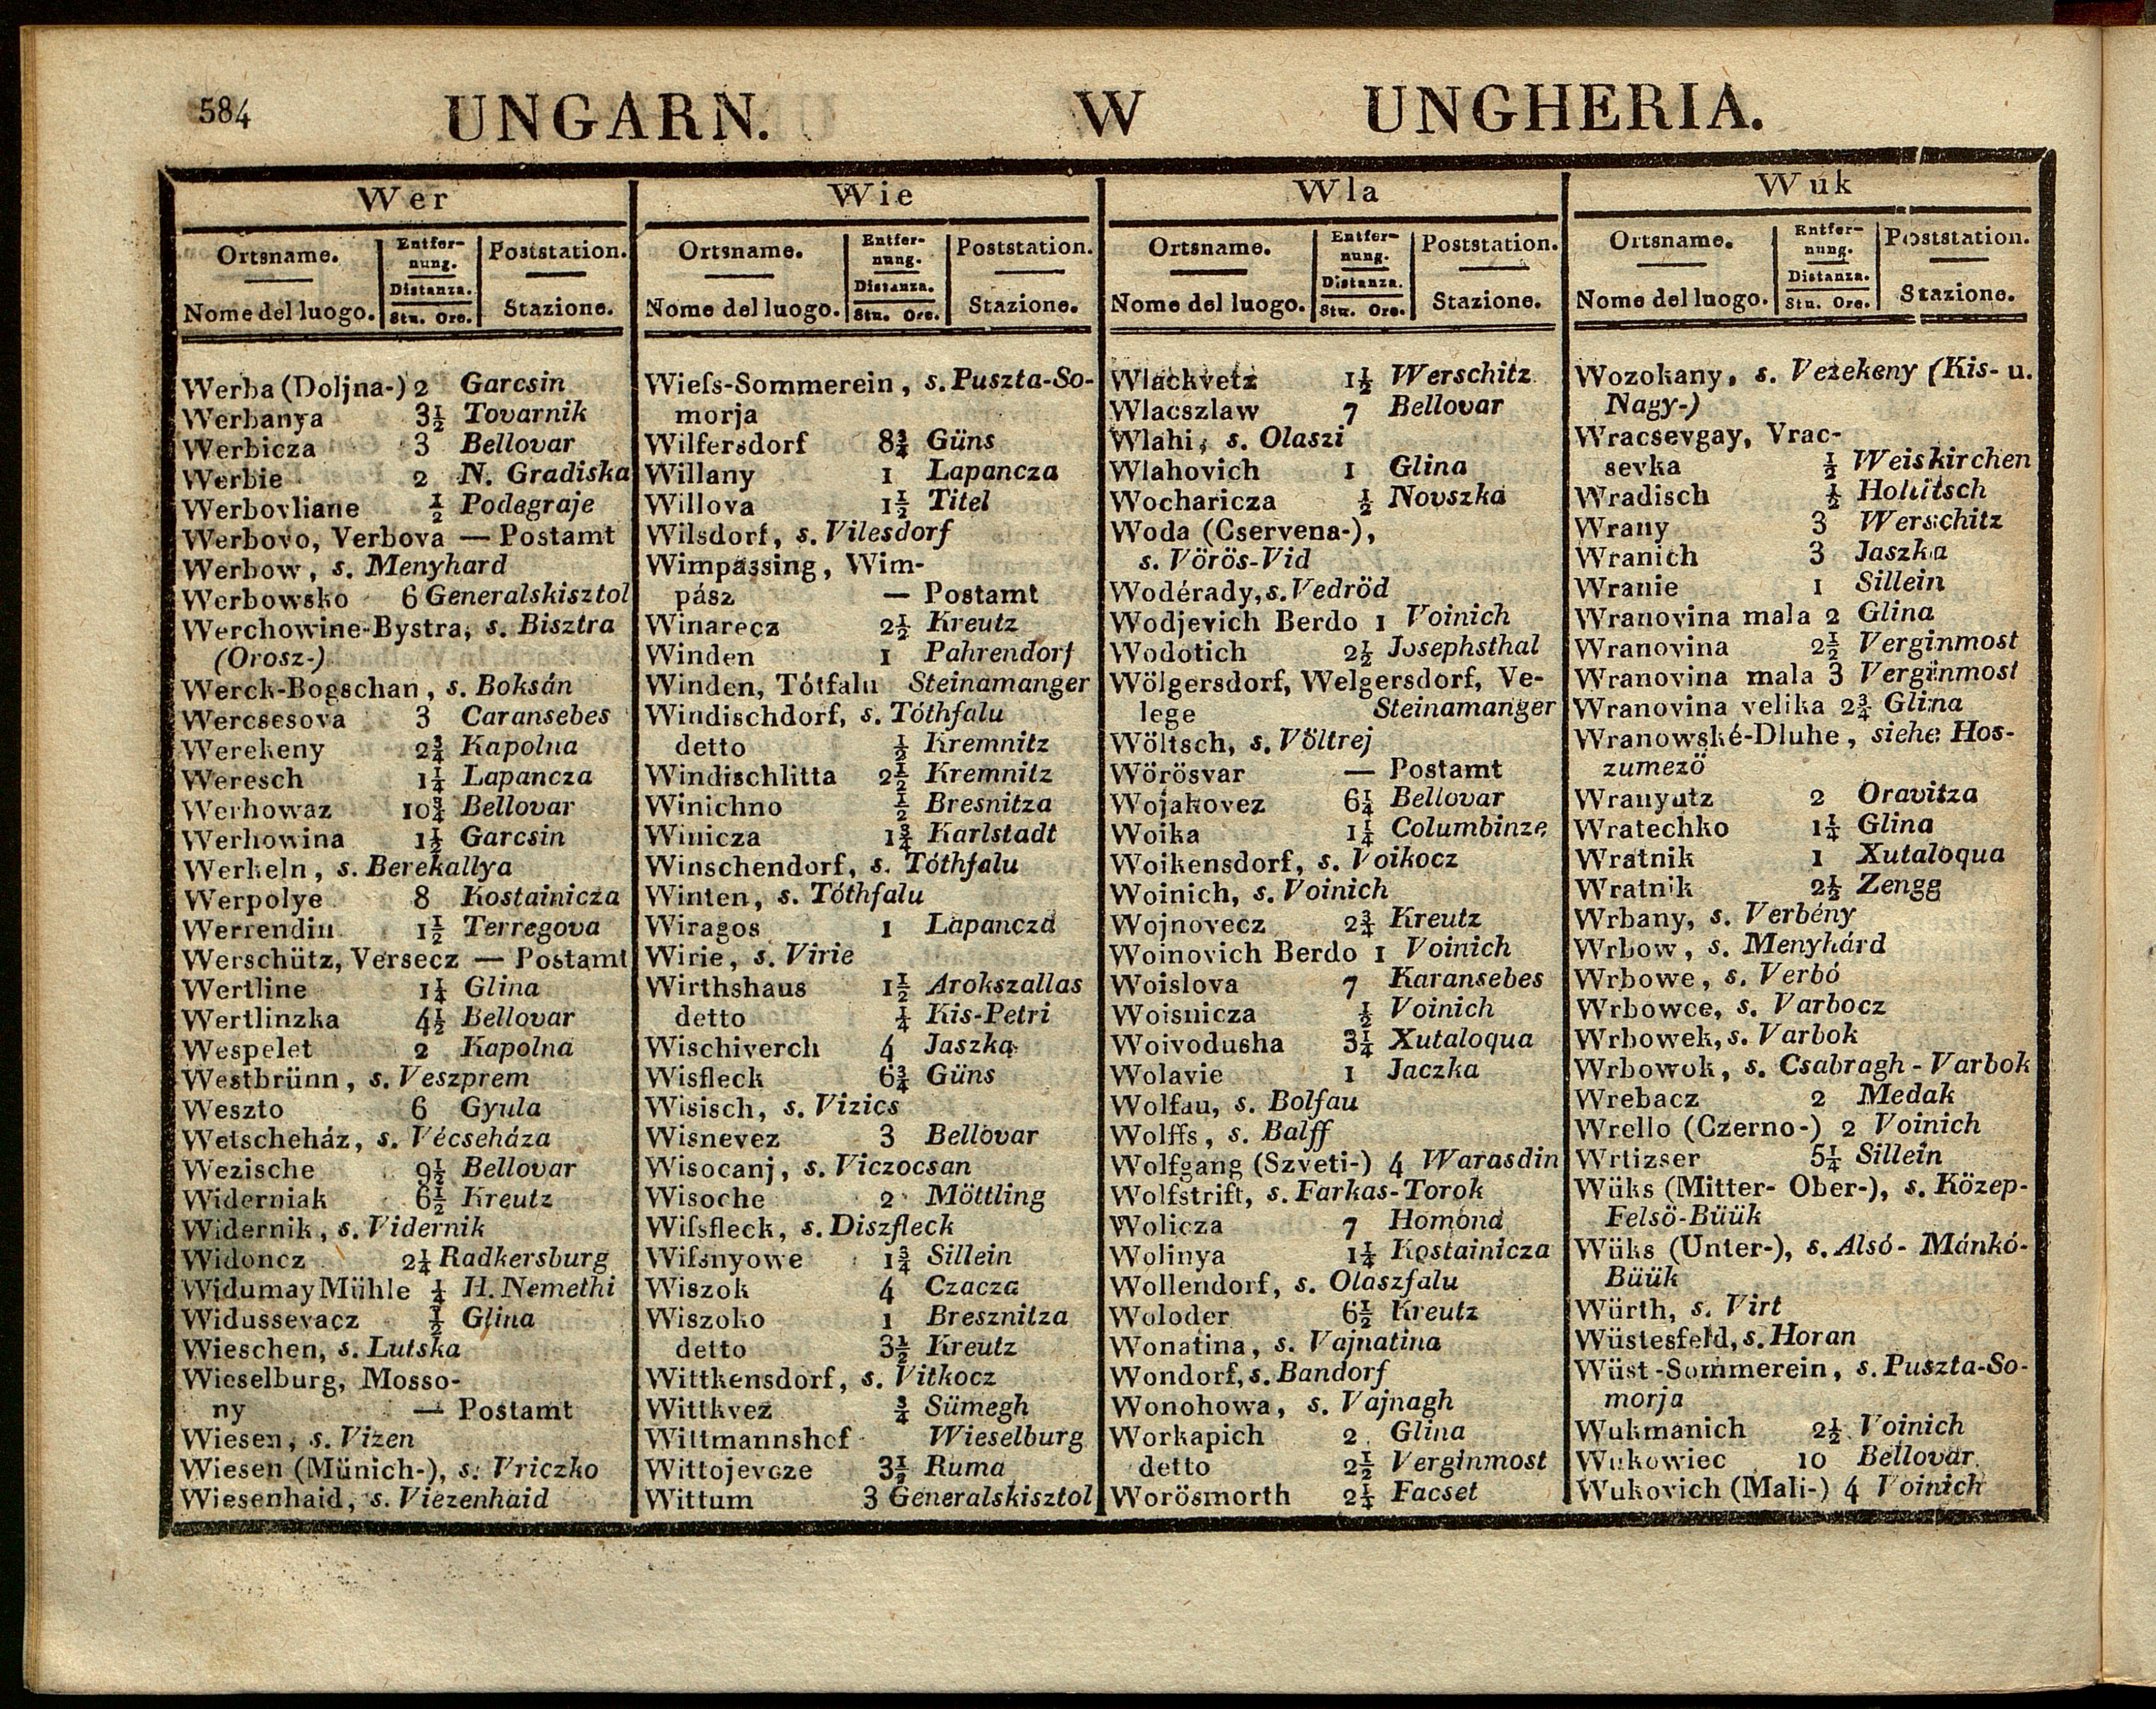 584 UNGARN. W UNGHERIA.
Wer
Ortsname. Entfer-
nung. Poststation.
Distanza.
Nome del luogo. Stn. Ore. Stazione.
Werba (Doljna-) 2 Garcsin
Werbanya 3½ Tovarnik
Werbicza 3 Bellovar
Werbie 2 N. Gradiska
Werbovliane ½ Podegraje
Werbovo, Verbova — Postamt
Werbow, s. Menyhard
Werbowsko 6 Generalskisztol
Werchowine-Bystra, s. Bisztra
(Orosz-)
Werck-Bogschan, s. Boksán
Wercsesova 3 Caransebes
Werekeny 2¾ Kapolna
Weresch 1¼ Lapancza
Werhowaz 10¾ Bellovar
Werhowina 1½ Garcsin
Werkeln, s. Berekallya
Werpolye 8 Kostainicza
Werrendin 1½ Terregova
Werschütz, Versecz — Postamt
Wertline 1¼ Glina
Wertlinzka 4½ Bellovar
Wespelet 2 Kapolna
Westbrünn, s. Veszprem
Weszto 6 Gyula
Wetscheház, s. Vécseháza
Wezische 9½ Bellovar
Widerniak 6½ Kreutz
Widernik, s. Vidernik
Widoncz 2¼ Radkersburg
Widumay Mühle ¼ H. Nemethi
Widussevacz ½ Glina
Wieschen, s. Lutska
Wieselburg, Mosso-
ny — Postamt
Wiesen, s. Vizen
Wiesen (Münich-), s. Vriczko
Wiesenhaid, s. Viezenhaid
Wie
Ortsname. Entfer-
nung. Poststation.
Distanza.
Nome del luogo. Stn. Ore. Stazione.
Wieſs-Sommerein, s. Puszta-So-
morja
Wilfersdorf 8¾ Güns
Willany 1 Lapancza
Willova 1½ Titel
Wilsdorf, s. Vilesdorf
Wimpássing, Wim-
pász — Postamt
Winarecz 2½ Kreutz
Winden 1 Pahrendorf
Winden, Tótfalu Steinamanger
Windischdorf, s. Tóthfalu
detto ½ Kremnitz
Windischlitta 2½ Kremnitz
Winichno ½ Bresnitza
Winicza 1¾ Karlstadt
Winschendorf, s. Tóthfalu
Winten, s. Tóthfalu
Wiragos 1 Lapancza
Wirie, s. Virie
Wirthshaus 1½ Arokszallas
detto ¼ Kis-Petri
Wischiverch 4 Jaszka
Wisfleck 6¾ Güns
Wisisch, s. Vizics
Wisnevez 3 Bellovar
Wisocanj, s. Viczocsan
Wisoche 2 Möttling
Wiſsfleck, s. Diszfleck
Wiſsnyowe 1¾ Sillein
Wiszok 4 Czacza
Wiszoko 1 Bresznitza
detto 3½ Kreutz
Wittkensdorf, s. Vitkocz
Wittkvez ¾ Sümegh
Wittmannshof Wieselburg
Wittojevcze 3½ Ruma
Wittum 3 Generalskisztol
Wla
Ortsname. Entfer-
nung. Poststation.
Distanza.
Nome del luogo. Stn. Ore. Stazione.
Wlackvetz 1½ Werschitz
Wlacszlaw 7 Bellovar
Wlahi, s. Olaszi
Wlahovich 1 Glina
Wocharicza ½ Novszka
Woda (Cservena-),
s. Vörös-Vid
Wodérady, s. Vedröd
Wodjevich Berdo 1 Voinich
Wodotich 2½ Josephsthal
Wölgersdorf, Welgersdorf, Ve-
lege Steinamanger
Wöltsch, s. Völtrej
Wörösvar — Postamt
Wojakovez 6¼ Bellovar
Woika 1¼ Columbinze
Woikensdorf, s. Voikocz
Woinich, s. Voinich
Wojnovecz 2¾ Kreutz
Woinovich Berdo 1 Voinich
Woislova 7 Karansebes
Woisnicza ½ Voinich
Woivodusha 3¼ Xutaloqua
Wolavie 1 Jaczka
Wolfau, s. Bolfau
Wolffs, s. Balff
Wolfgang (Szveti-) 4 Warasdin
Wolfstrift, s. Farkas-Torok
Wolicza 7 Homona
Wolinya 1¼ Kostainicza
Wollendorf, s. Olaszfalu
Woloder 6½ Kreutz
Wonatina, s. Vajnatina
Wondorf, s. Bandorf
Wonohowa, s. Vajnagh
Workapich 2 Glina
detto 2½ Verginmost
Worösmorth 2¼ Facset
Wuk
Ortsname. Entfer-
nung. Poststation.
Distanza.
Nome del luogo. Stn. Ore. Stazione.
Wozokany, s. Vezekeny (Kis- u.
Nagy-)
Wracsevgay, Vrac-
sevka ½ Weiskirchen
Wradisch ½ Hollitsch
Wrany 3 Werschitz
Wranich 3 Jaszka
Wranie 1 Sillein
Wranovina mala 2 Glina
Wranovina 2½ Verginmost
Wranovina mala 3 Verginmost
Wranovina velika 2¾ Glina
Wranowské-Dluhe, siehe Hos-
zumezö
Wranyutz 2 Oravitza
Wratechko 1¼ Glina
Wratnik 1 Xutaloqua
Wratnik 2½ Zengg
Wrbany, s. Verbény
Wrbow, s. Menyhárd
Wrbowe, s. Verbó
Wrbowce, s. Varbocz
Wrbowek, s. Varbok
Wrbowok, s. Csabragh-Varbok
Wrebacz 2 Medak
Wrello (Czerno-) 2 Voinich
Wrtizser 5¼ Sillein
Wüks (Mitter- Ober-), s. Közep-
Felsö-Büük
Wüks (Unter-), s. Alsó- Mánkó-
Büük
Würth, s. Virt
Wüstesfeld, s. Horan
Wüst-Sommerein, s. Puszta-So-
morja
Wukmanich 2½ Voinich
Wukowiec 10 Bellovar
Wukovich (Mali-) 4 Voinich